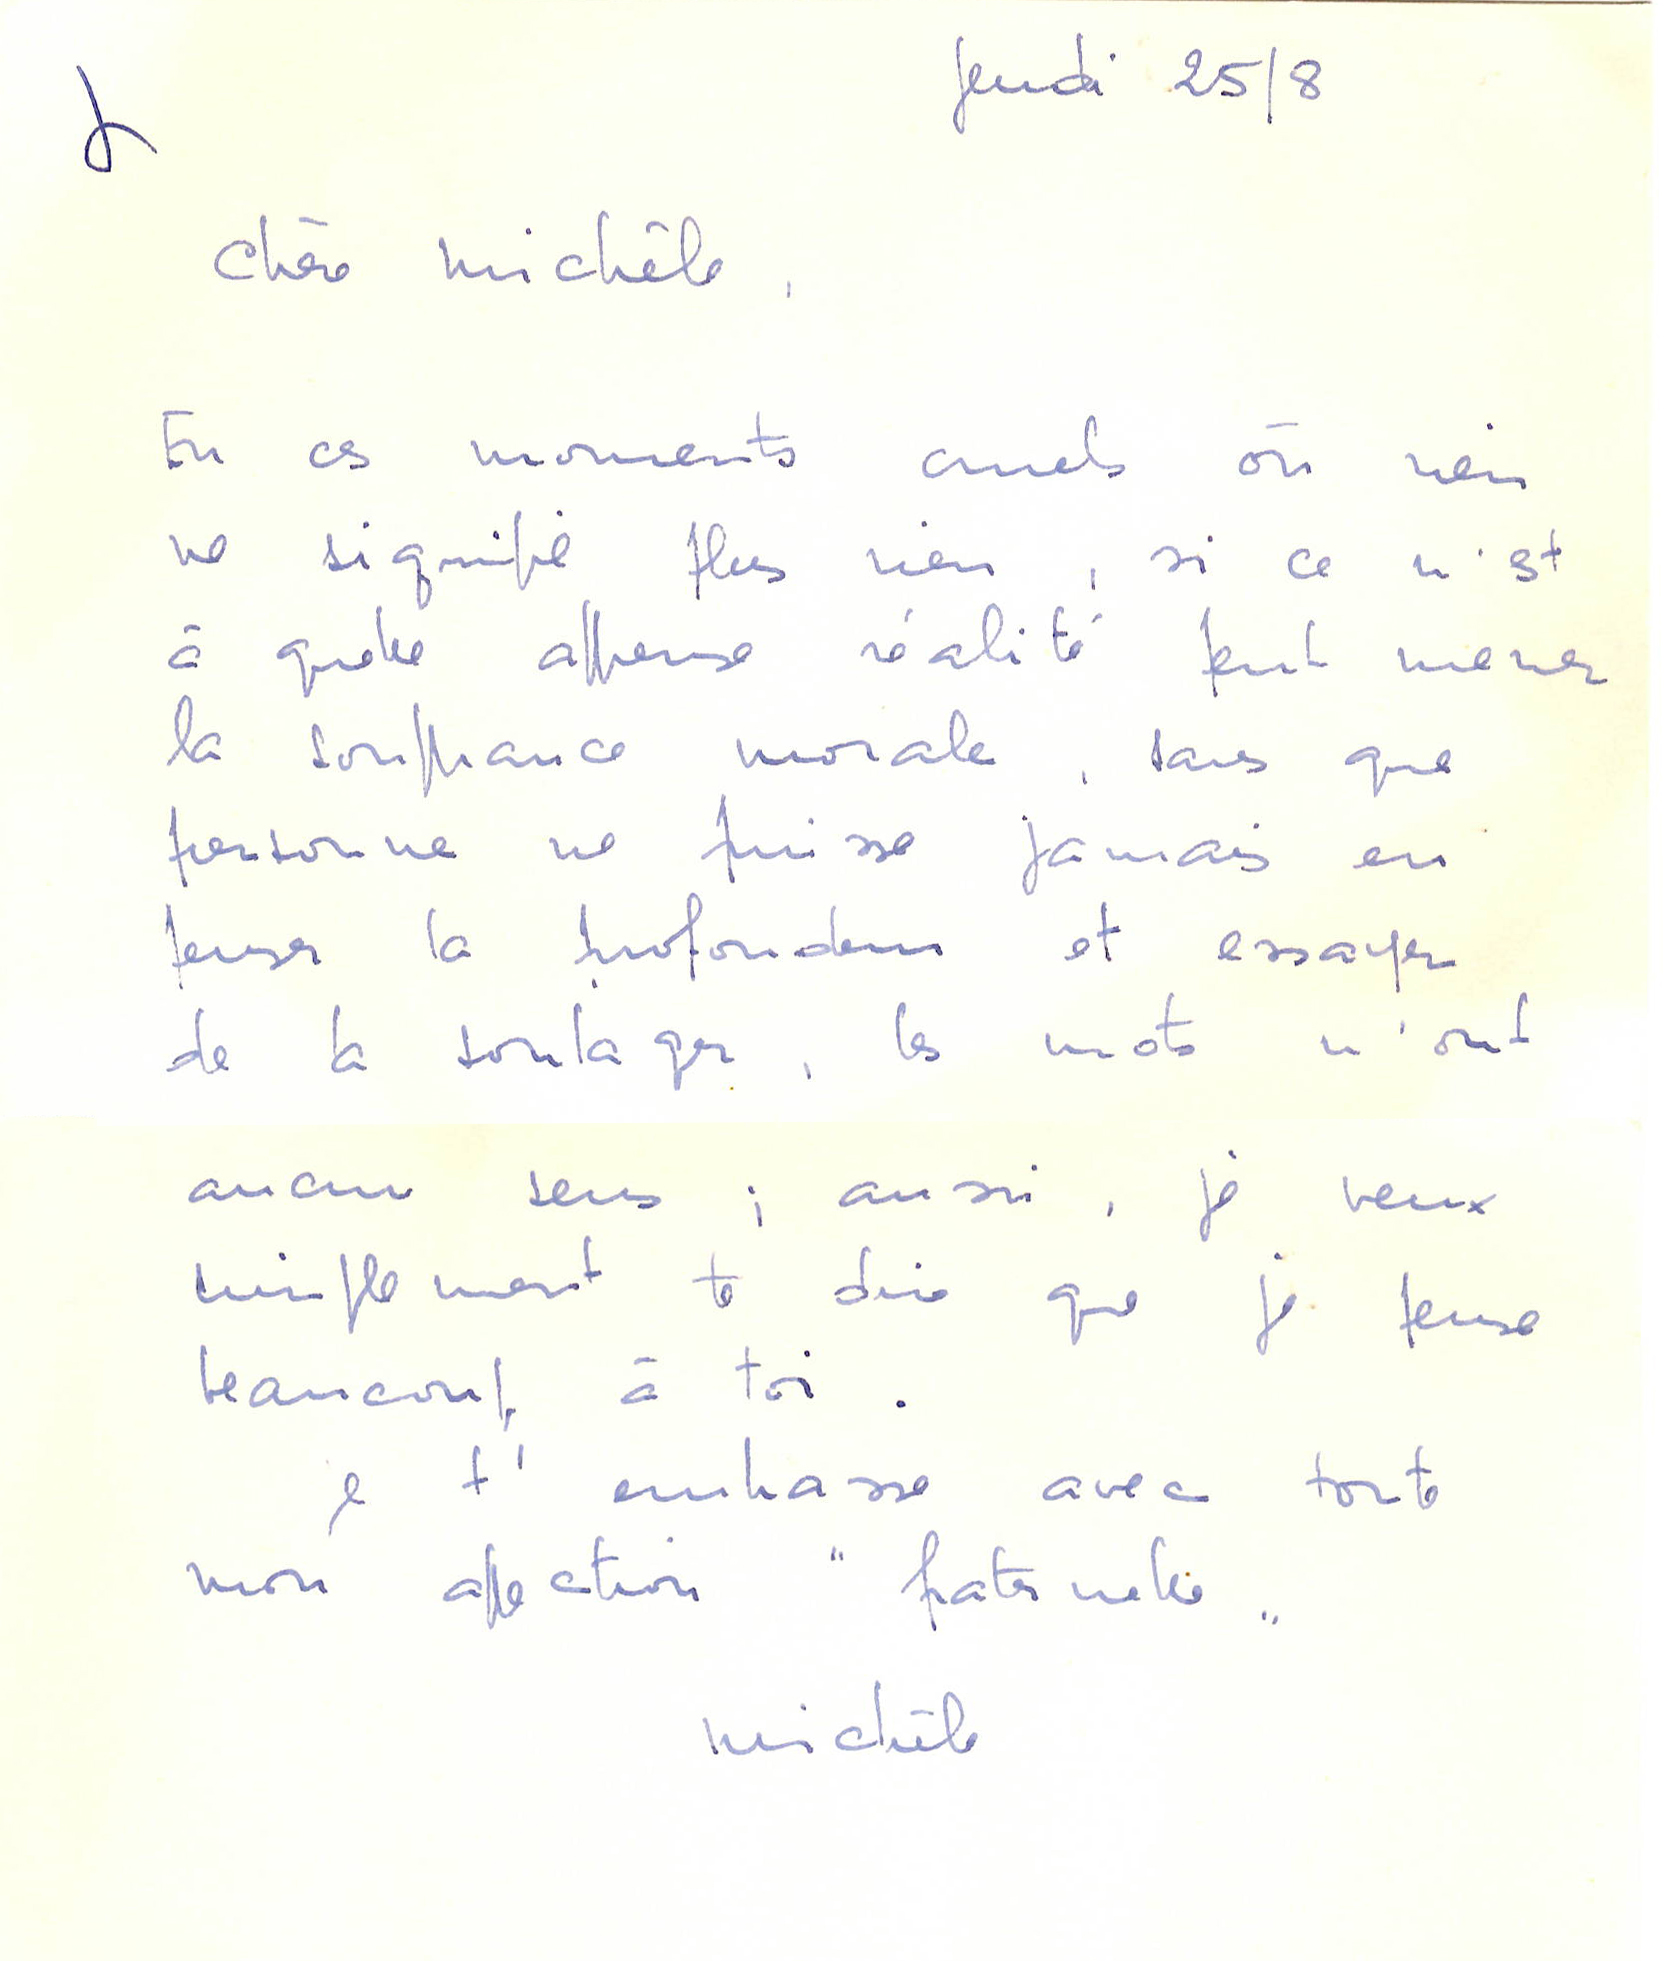 Jeudi 25/8
Chère Michèle,
En ces moments cruels où rien
ne signifie plus rien, si ce n'est
à quelle affreuse réalité peut mener
la souffrance morale, sans que
personne ne puisse jamais en
penser la profondeur et essayer
de la soulager, les mots n'ont
aucun sens ; aussi, je veux
simplement te dire que je pense
beaucoup à toi.
Je t'embrasse avec toute
mon affection "fraternelle"
Michèle